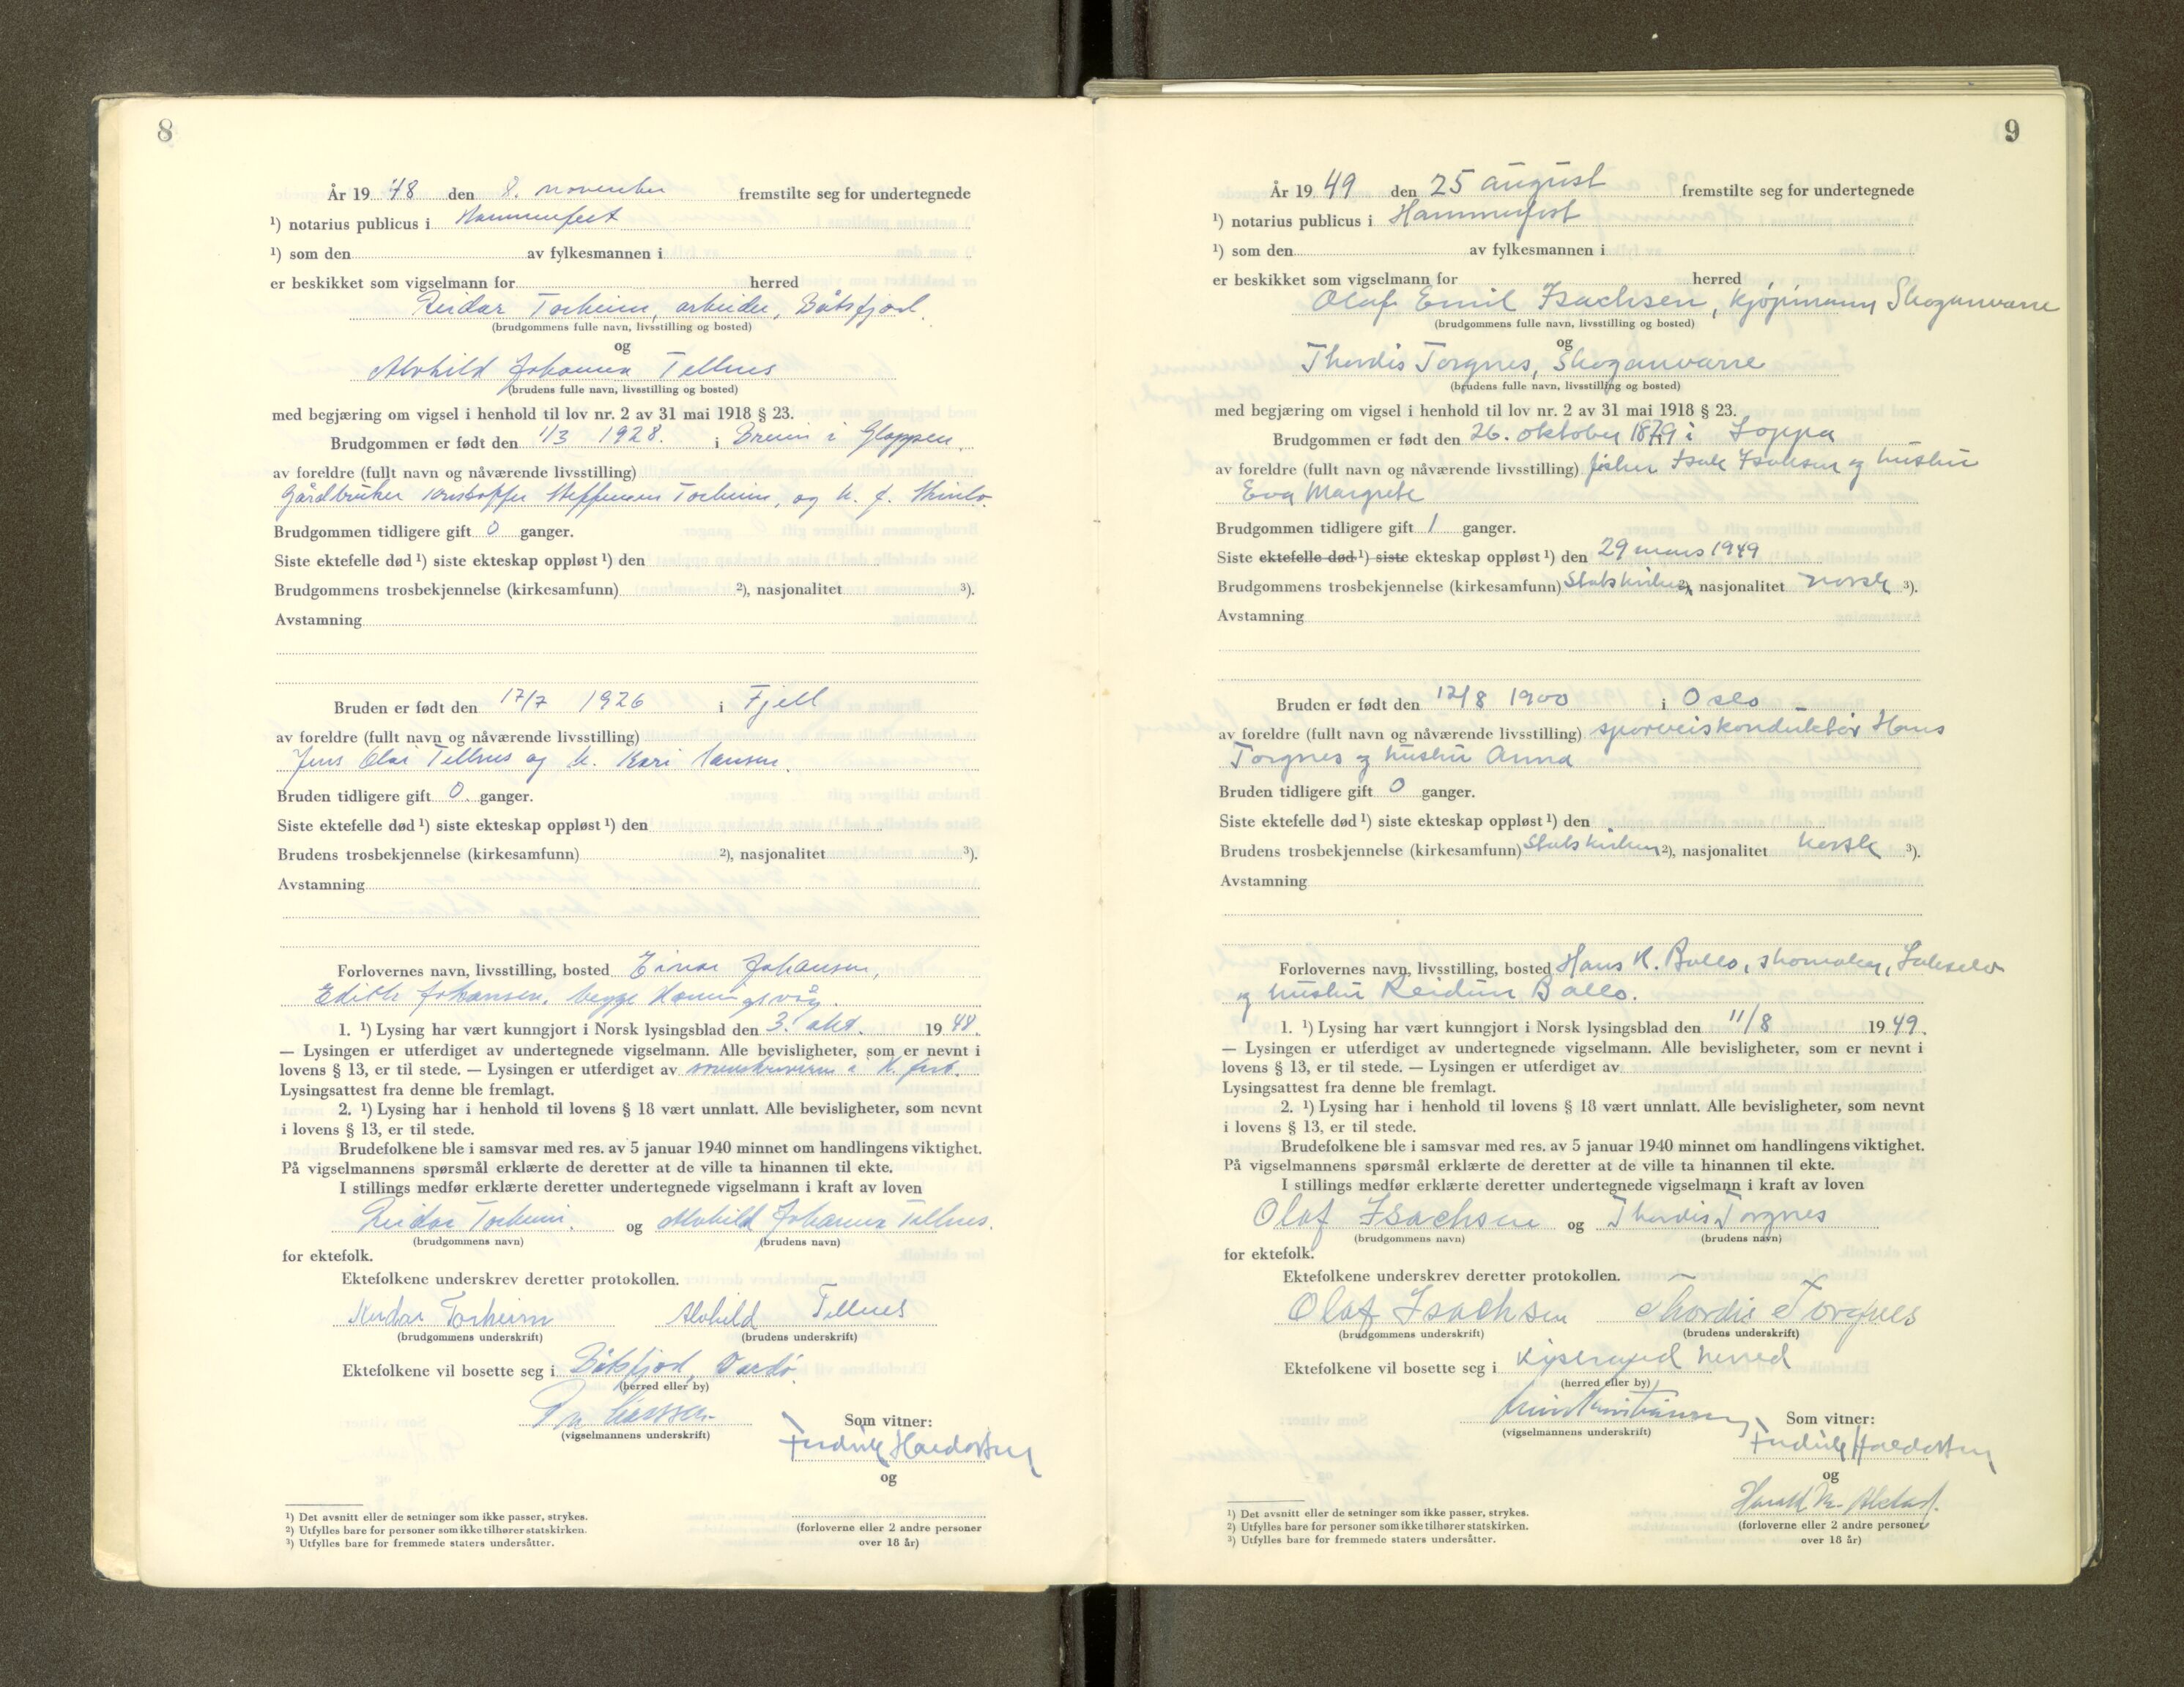 8
År 19 48 den 8. november fremstilte seg for undertegnede
¹) notarius publicus i Hammerfest
¹) som den av fylkesmannen i
er beskikket som vigselmann for herred
Reidar Torheim, arbeider, Båtsfjord.
(brudgommens fulle navn, livsstilling og bosted)
og
Alvhild Johanna Tellnes
(brudens fulle navn, livsstilling og bosted)
med begjæring om vigsel i henhold til lov nr. 2 av 31 mai 1918 § 23.
Brudgommen er født den 1/3 1928. i Breim i Gloppen.
av foreldre (fullt navn og nåværende livsstilling)
Gårdbruker Kristoffer Steffensen Torheim, og h. f.
Brudgommen tidligere gift 0 ganger.
Siste ektefelle død ¹) siste ekteskap oppløst ¹) den
Brudgommens trosbekjennelse (kirkesamfunn) ²), nasjonalitet ³).
Avstamning
Bruden er født den 17/7 1926 i Fjell
av foreldre (fullt navn og nåværende livsstilling)
Jens Olai Tellnes og h. Kari Hansen.
Bruden tidligere gift 0 ganger.
Siste ektefelle død ¹) siste ekteskap oppløst ¹) den
Brudens trosbekjennelse (kirkesamfunn) ²), nasjonalitet ³).
Avstamning
Forlovernes navn, livsstilling, bosted Einar Johansen,
Edith Johansen, begge Honningsvåg.
1. ¹) Lysing har vært kunngjort i Norsk lysingsblad den 3. okt. 19 48.
— Lysingen er utferdiget av undertegnede vigselmann. Alle bevisligheter, som er nevnt i
lovens § 13, er til stede. — Lysingen er utferdiget av sorenskriveren i H.fest.
Lysingsattest fra denne ble fremlagt.
2. ¹) Lysing har i henhold til lovens § 18 vært unnlatt. Alle bevisligheter, som nevnt
i lovens § 13, er til stede.
Brudefolkene ble i samsvar med res. av 5 januar 1940 minnet om handlingens viktighet.
På vigselmannens spørsmål erklærte de deretter at de ville ta hinannen til ekte.
I stillings medfør erklærte deretter undertegnede vigselmann i kraft av loven
Reidar Torheim. og Alvhild Johanna Tellnes.
(brudgommens navn) (brudens navn)
for ektefolk.
Ektefolkene underskrev deretter protokollen.
Reidar Torheim Alvhild Tellnes
(brudgommens underskrift) (brudens underskrift)
Ektefolkene vil bosette seg i Båtsfjord, Vardø.
(herred eller by)
(vigselmannens underskrift)
Som vitner:
Fredrik
og
¹) Det avsnitt eller de setninger som ikke passer, strykes.
²) Utfylles bare for personer som ikke tilhører statskirken.
³) Utfylles bare for fremmede staters undersåtter.
(forloverne eller 2 andre personer
over 18 år)
9
År 19 49 den 25 august fremstilte seg for undertegnede
¹) notarius publicus i Hammerfest
¹) som den av fylkesmannen i
er beskikket som vigselmann for herred
Olaf Emil Isachsen, kjøpmann, Skoganvarre
(brudgommens fulle navn, livsstilling og bosted)
og
Thordis Torgnes, Skoganvarre
(brudens fulle navn, livsstilling og bosted)
med begjæring om vigsel i henhold til lov nr. 2 av 31 mai 1918 § 23.
Brudgommen er født den 26. oktober 1879 i Loppa
av foreldre (fullt navn og nåværende livsstilling) fisker Isak Isaksen og hustru
Eva Margrete
Brudgommen tidligere gift 1 ganger.
Siste ektefelle død ¹) siste ekteskap oppløst ¹) den 29 mars 1949
Brudgommens trosbekjennelse (kirkesamfunn) Statskirken ²), nasjonalitet norsk ³).
Avstamning
Bruden er født den 12/8 1900 i Oslo
av foreldre (fullt navn og nåværende livsstilling) sporveiskonduktør Hans
Torgnes og hustru Anna
Bruden tidligere gift 0 ganger.
Siste ektefelle død ¹) siste ekteskap oppløst ¹) den
Brudens trosbekjennelse (kirkesamfunn) Statskirken ²), nasjonalitet norsk ³).
Avstamning
Forlovernes navn, livsstilling, bosted Hans K. Ballo, skomaker, Lakselv
og hustru Reidun Ballo.
1. ¹) Lysing har vært kunngjort i Norsk lysingsblad den 11/8 19 49.
— Lysingen er utferdiget av undertegnede vigselmann. Alle bevisligheter, som er nevnt i
lovens § 13, er til stede. — Lysingen er utferdiget av
Lysingsattest fra denne ble fremlagt.
2. ¹) Lysing har i henhold til lovens § 18 vært unnlatt. Alle bevisligheter, som nevnt
i lovens § 13, er til stede.
Brudefolkene ble i samsvar med res. av 5 januar 1940 minnet om handlingens viktighet.
På vigselmannens spørsmål erklærte de deretter at de ville ta hinannen til ekte.
I stillings medfør erklærte deretter undertegnede vigselmann i kraft av loven
Olaf Isachsen og Thordis Torgnes
(brudgommens navn) (brudens navn)
for ektefolk.
Ektefolkene underskrev deretter protokollen.
Olaf Isachsen Thordis Torgnes
(brudgommens underskrift) (brudens underskrift)
Ektefolkene vil bosette seg i Kistrand herred
(herred eller by)
(vigselmannens underskrift)
Som vitner:
Fredrik
og
Harald M.
¹) Det avsnitt eller de setninger som ikke passer, strykes.
²) Utfylles bare for personer som ikke tilhører statskirken.
³) Utfylles bare for fremmede staters undersåtter.
(forloverne eller 2 andre personer
over 18 år)